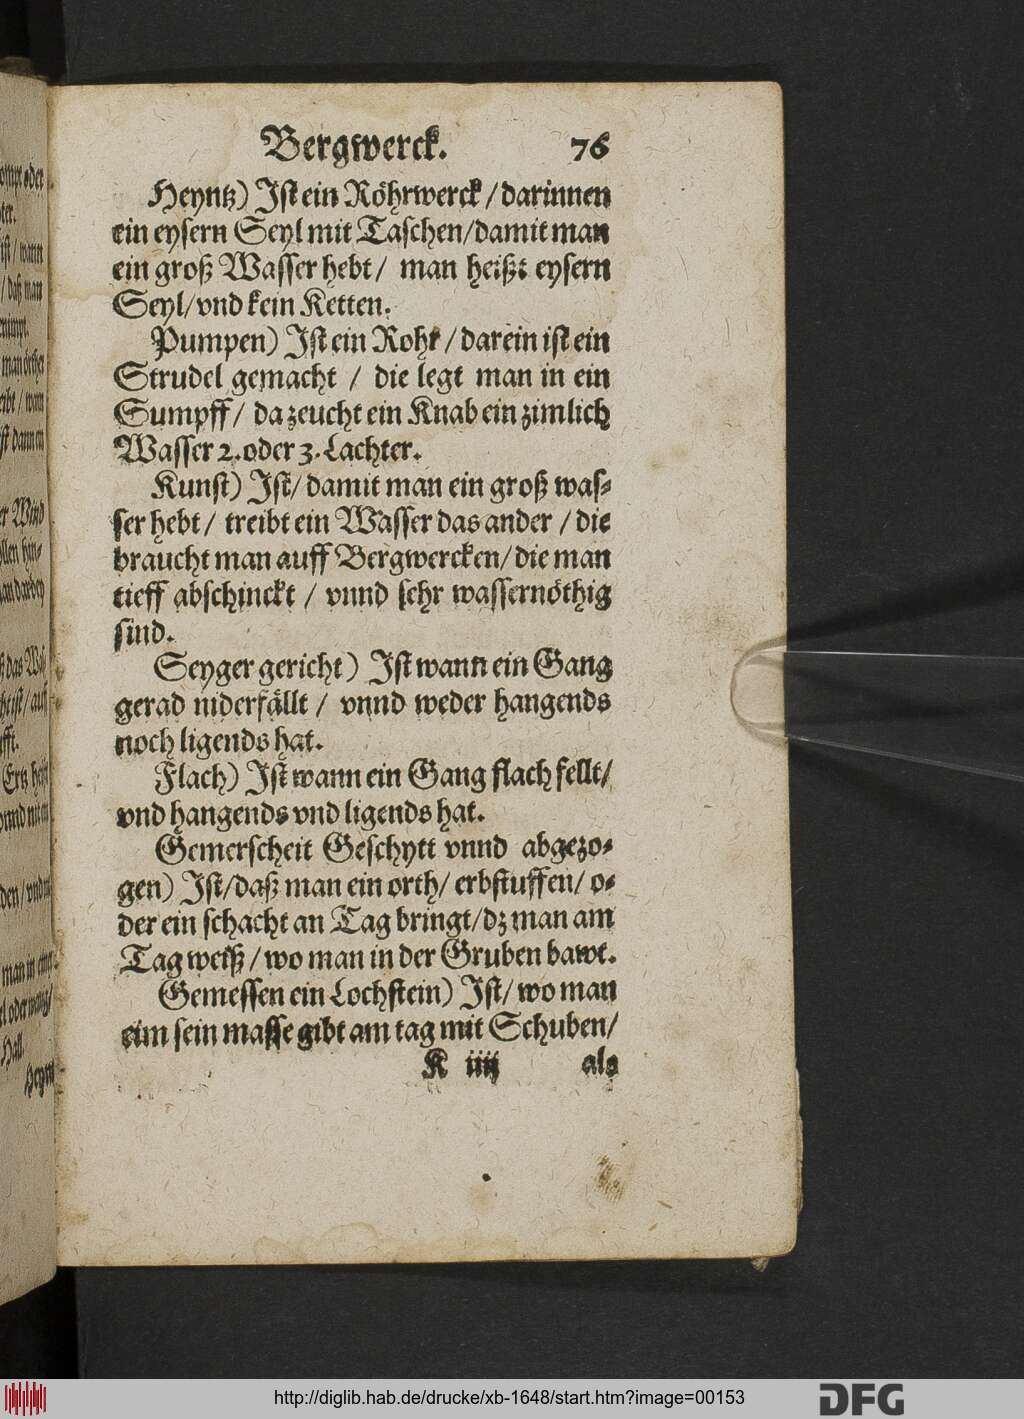 Bergwerck. 76
Heyntz) Ist ein Röhrwerck / darinnen
ein eysern Seyl mit Taschen/damit man
ein groß Wasser hebt/ man heißt eysern
Seyl/vnd kein Ketten.
Pumpen) Ist ein Rohr / darein ist ein
Strudel gemacht / die legt man in ein
Sumpff/ da zeucht ein Knab ein zimlich
Wasser 2. oder 3. Lachter.
Kunst) Ist/ damit man ein groß was-
ser hebt/ treibt ein Wasser das ander / die
braucht man auff Bergwercken/ die man
tieff abschinckt / vnnd sehr wassernöthig
sind.
Seyger gericht) Ist wann ein Gang
gerad niderfällt / vnnd weder hangends
noch ligends hat.
Flach) Ist wann ein Gang flach fellt/
vnd hangends vnd ligends hat.
Gemerscheit Geschytt vnnd abgezo-
gen) Ist/daß man ein orth/ erbstuffen/ o-
der ein schacht an Tag bringt/dz man am
Tag weiß / wo man in der Gruben bawt.
Gemessen ein Lochstein) Ist/ wo man
eim sein masse gibt am tag mit Schuben/
K iiij als
http://diglib.hab.de/drucke/xb-1648/start.htm?image=00153
DFG